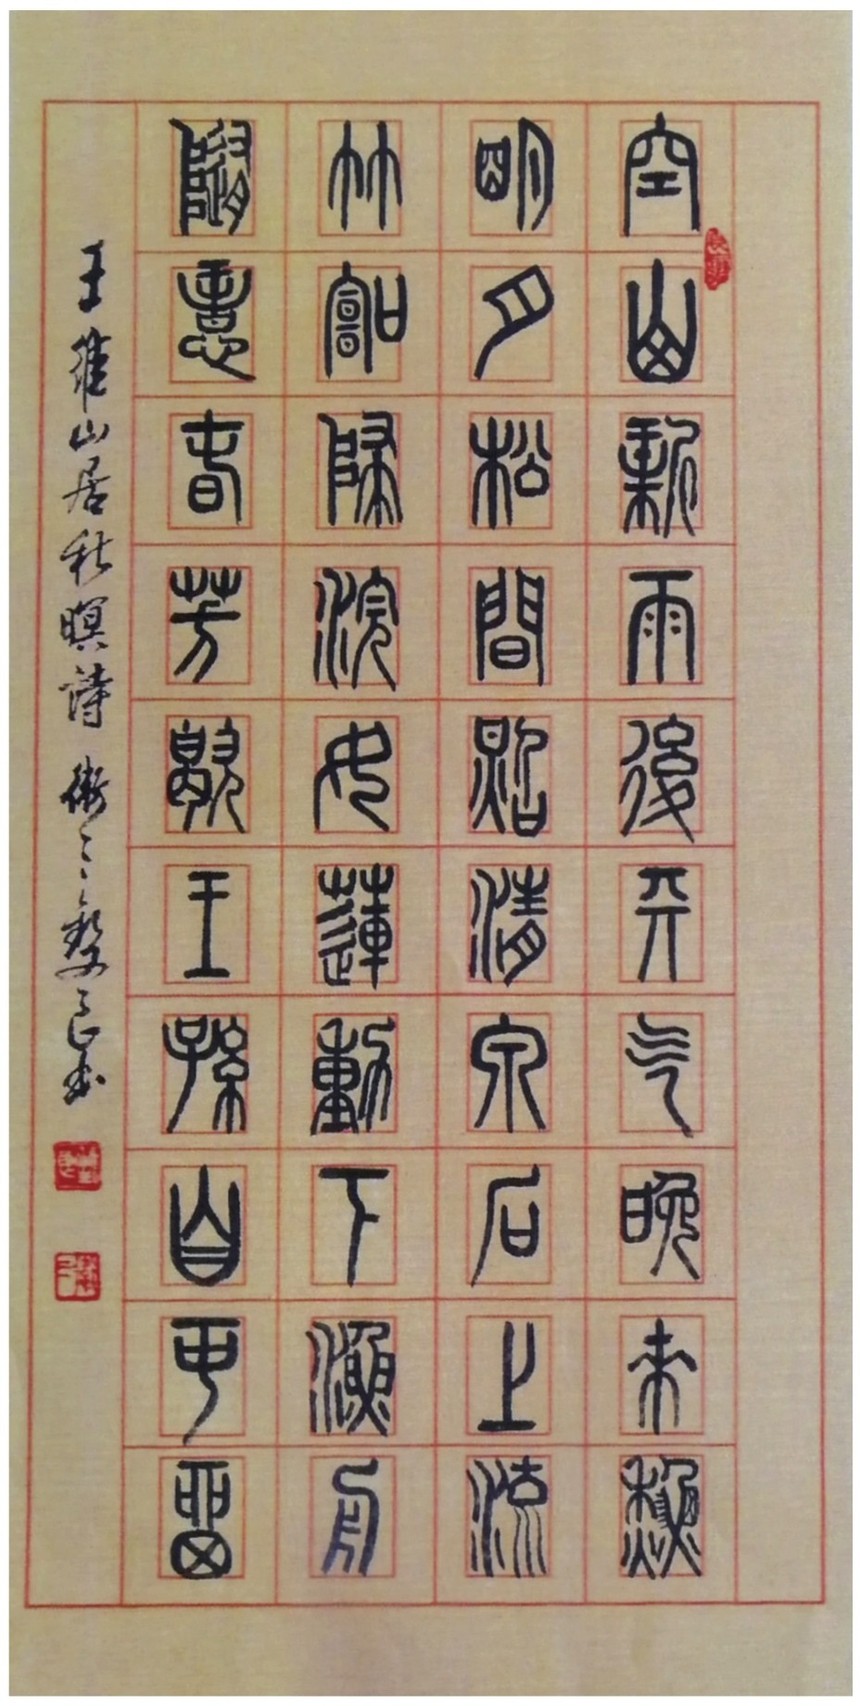 空山新雨後天气晚來秋
明月松間照清泉石上流
竹喧歸浣女蓮動下漁舟
隨意春芳歇王孫自可留
王維山居秋暝詩 良书